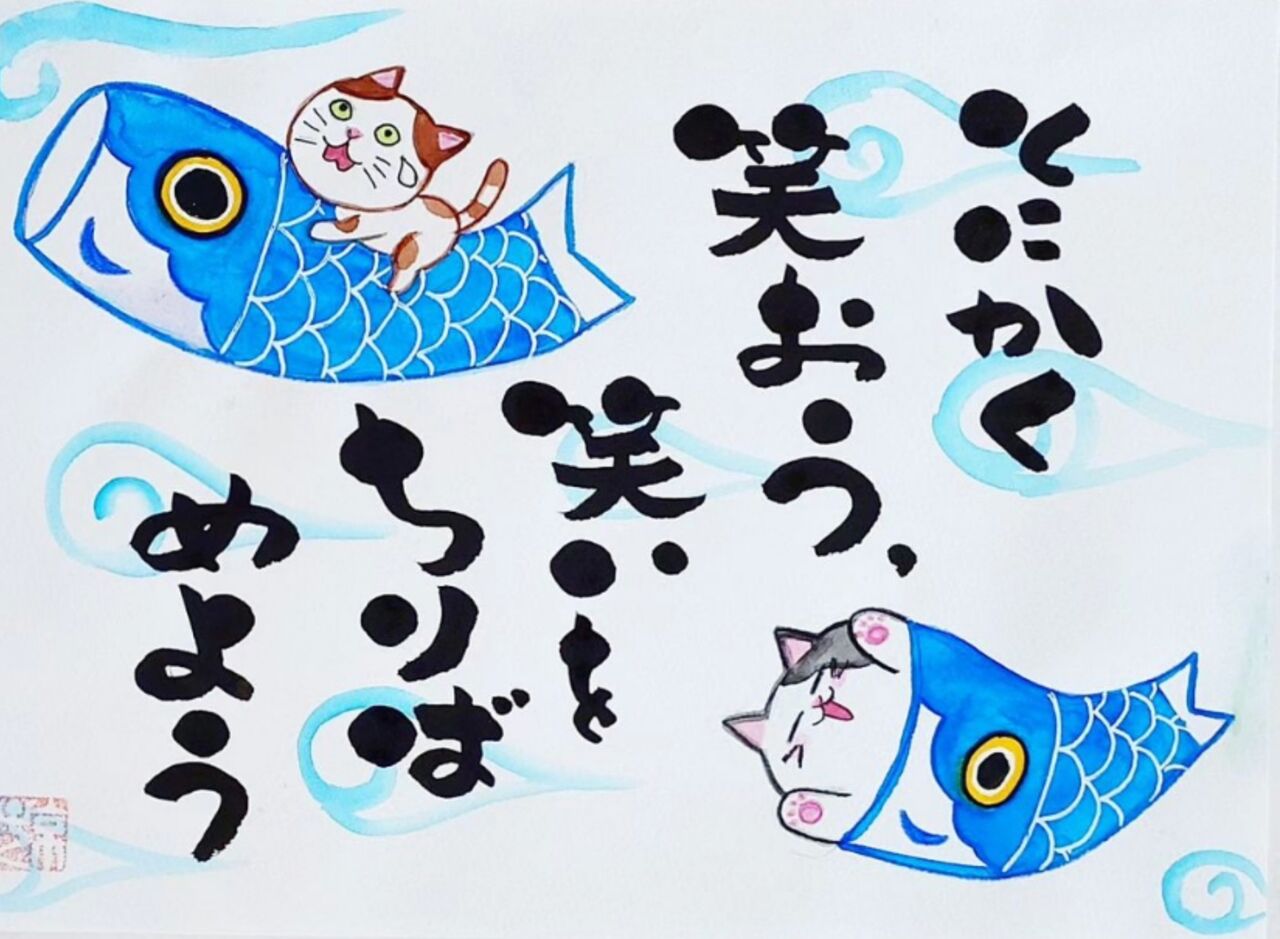 とにかく
笑おう、
笑いを
ちりば
めよう